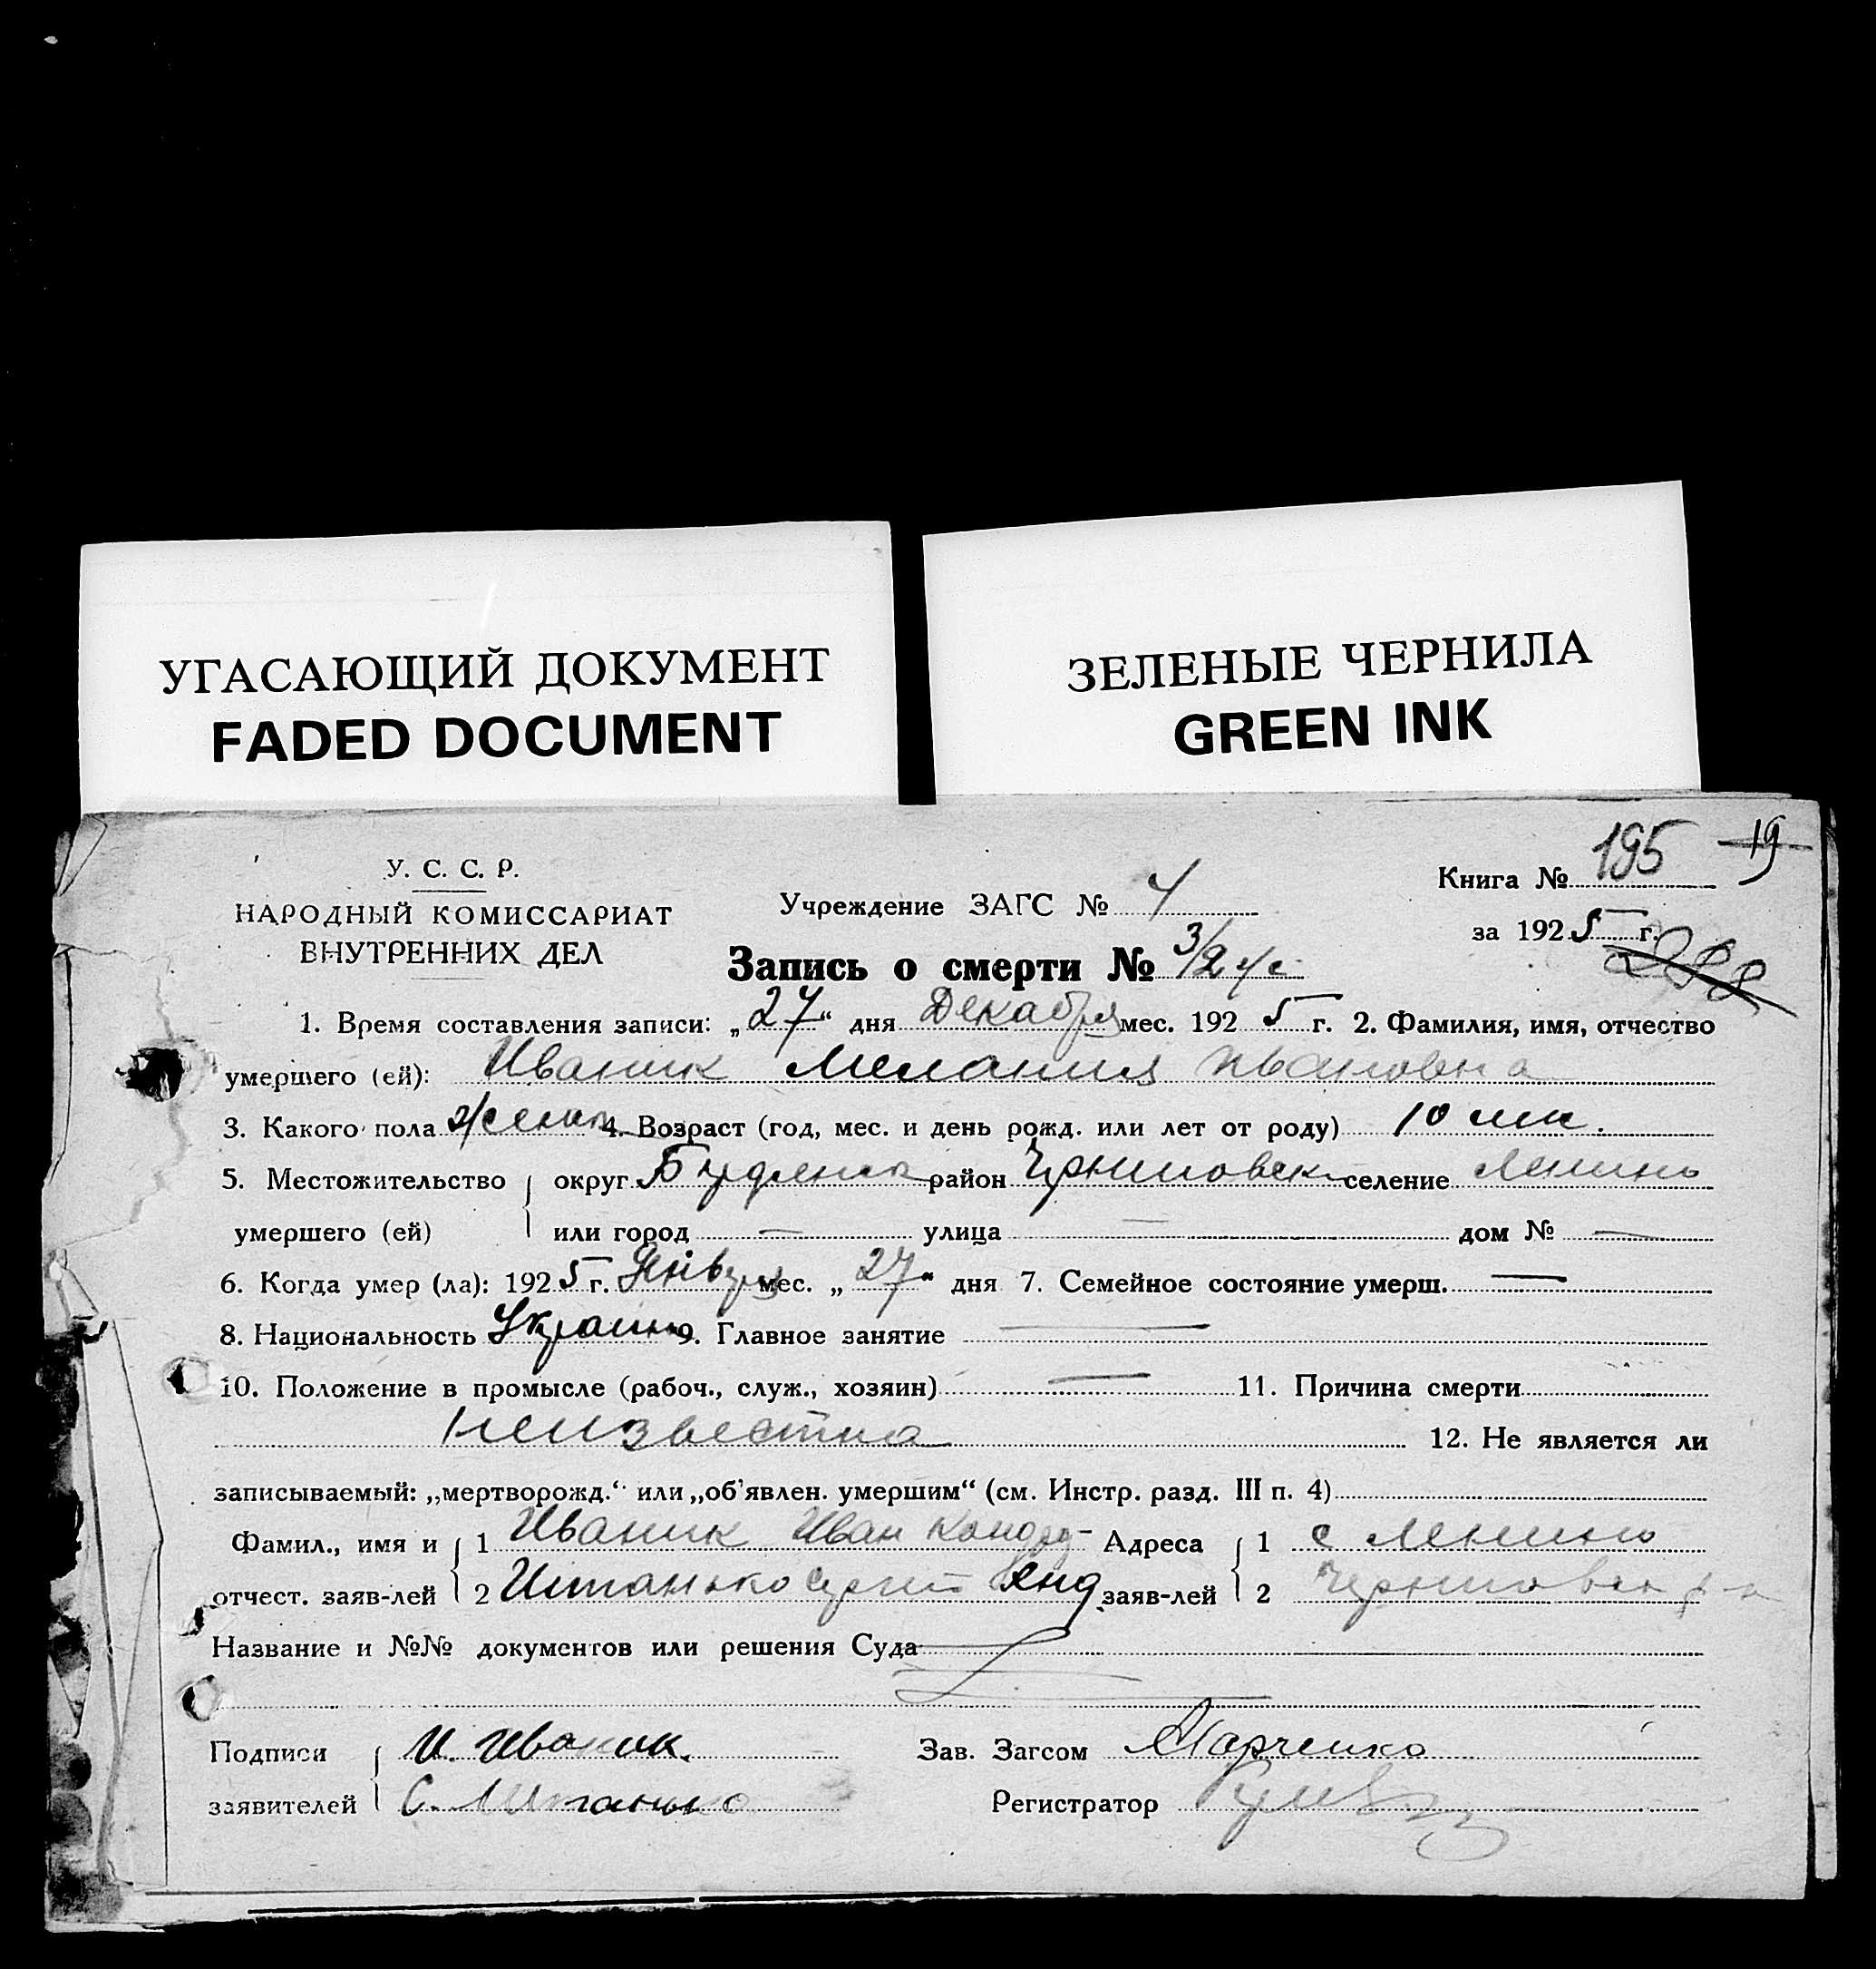 УГАСАЮЩИЙ ДОКУМЕНТ
FADED DOCUMENT
ЗЕЛЕНЫЕ ЧЕРНИЛА
GREEN INK
У. С. С. Р.
НАРОДНЫЙ КОМИССАРИАТ
ВНУТРЕННИХ ДЕЛ
Учреждение ЗАГС № 4
Книга № 195 19
за 1925 г.
288
Запись о смерти № 3/2
1. Время составления записи: „27“ дня Декабря мес. 1925 г. 2. Фамилия, имя, отчество
умершего (ей): Иваник Мелания Ивановна
3. Какого пола женск 4. Возраст (год, мес. и день рожд. или лет от роду) 10
5. Местожительство округ район селение Ленино
умершего (ей) или город — улица — дом № —
6. Когда умер (ла): 1925 г. Января мес. „27“ дня 7. Семейное состояние умерш. —
8. Национальность 9. Главное занятие —
10. Положение в промысле (рабоч., служ., хозяин) — 11. Причина смерти
неизвестна 12. Не является ли
записываемый: „мертворожд.“ или „об'явлен. умершим“ (см. Инстр. разд. III п. 4)
Фамил., имя и 1 Иваник Иван Адреса 1 с Ленино
отчест. заяв-лей 2 заяв-лей 2
Название и №№ документов или решения Суда
Подписи И. Иваник. Зав. Загсом Марченко
заявителей С. Регистратор